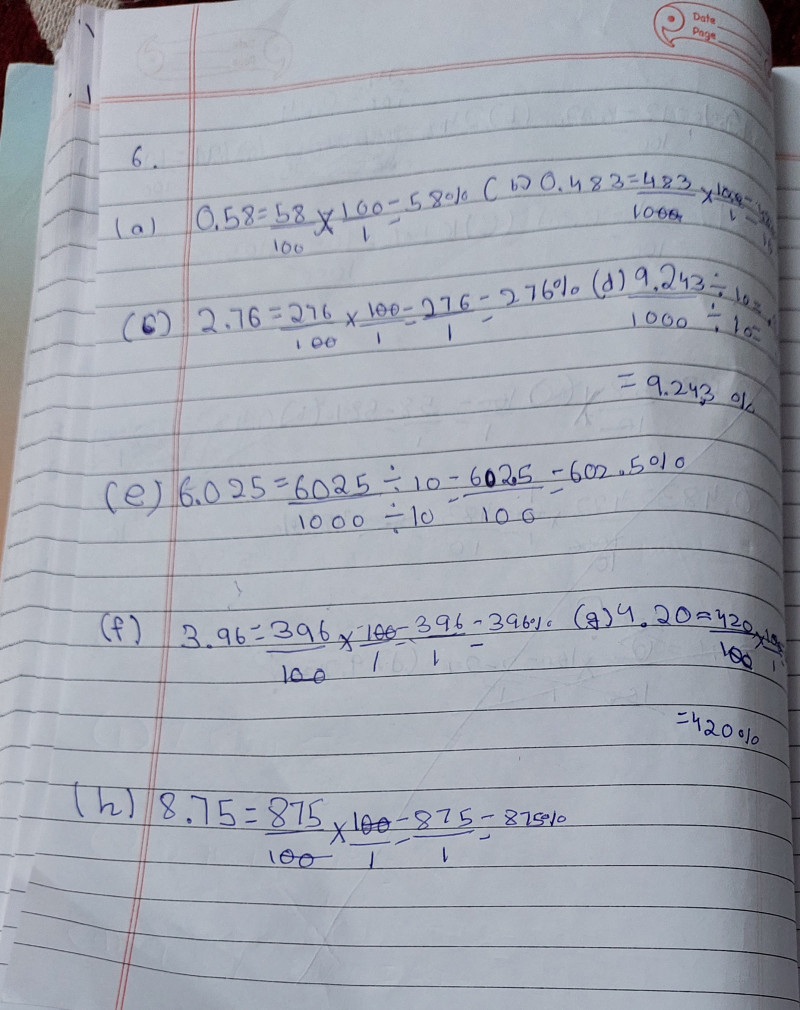 Date
Page
6.
(a) 0.58 = 58/100 × 100/1 = 58% (b) 0.483 = 483/1000 × 100/1 =
(c) 2.76 = 276/100 × 100/1 = 276/1 = 276% (d) 9.243 ÷ 10 = / 1000 ÷ 10 =
= 9.243 %
(e) 6.025 = 6025 ÷ 10 / 1000 ÷ 10 = 602.5/100 = 602.5%
(f) 3.96 = 396/100 × 100/1 = 396/1 = 396% (g) 4.20 = 420/100 × 100/1
= 420%
(h) 8.75 = 875/100 × 100/1 = 875/1 = 875%